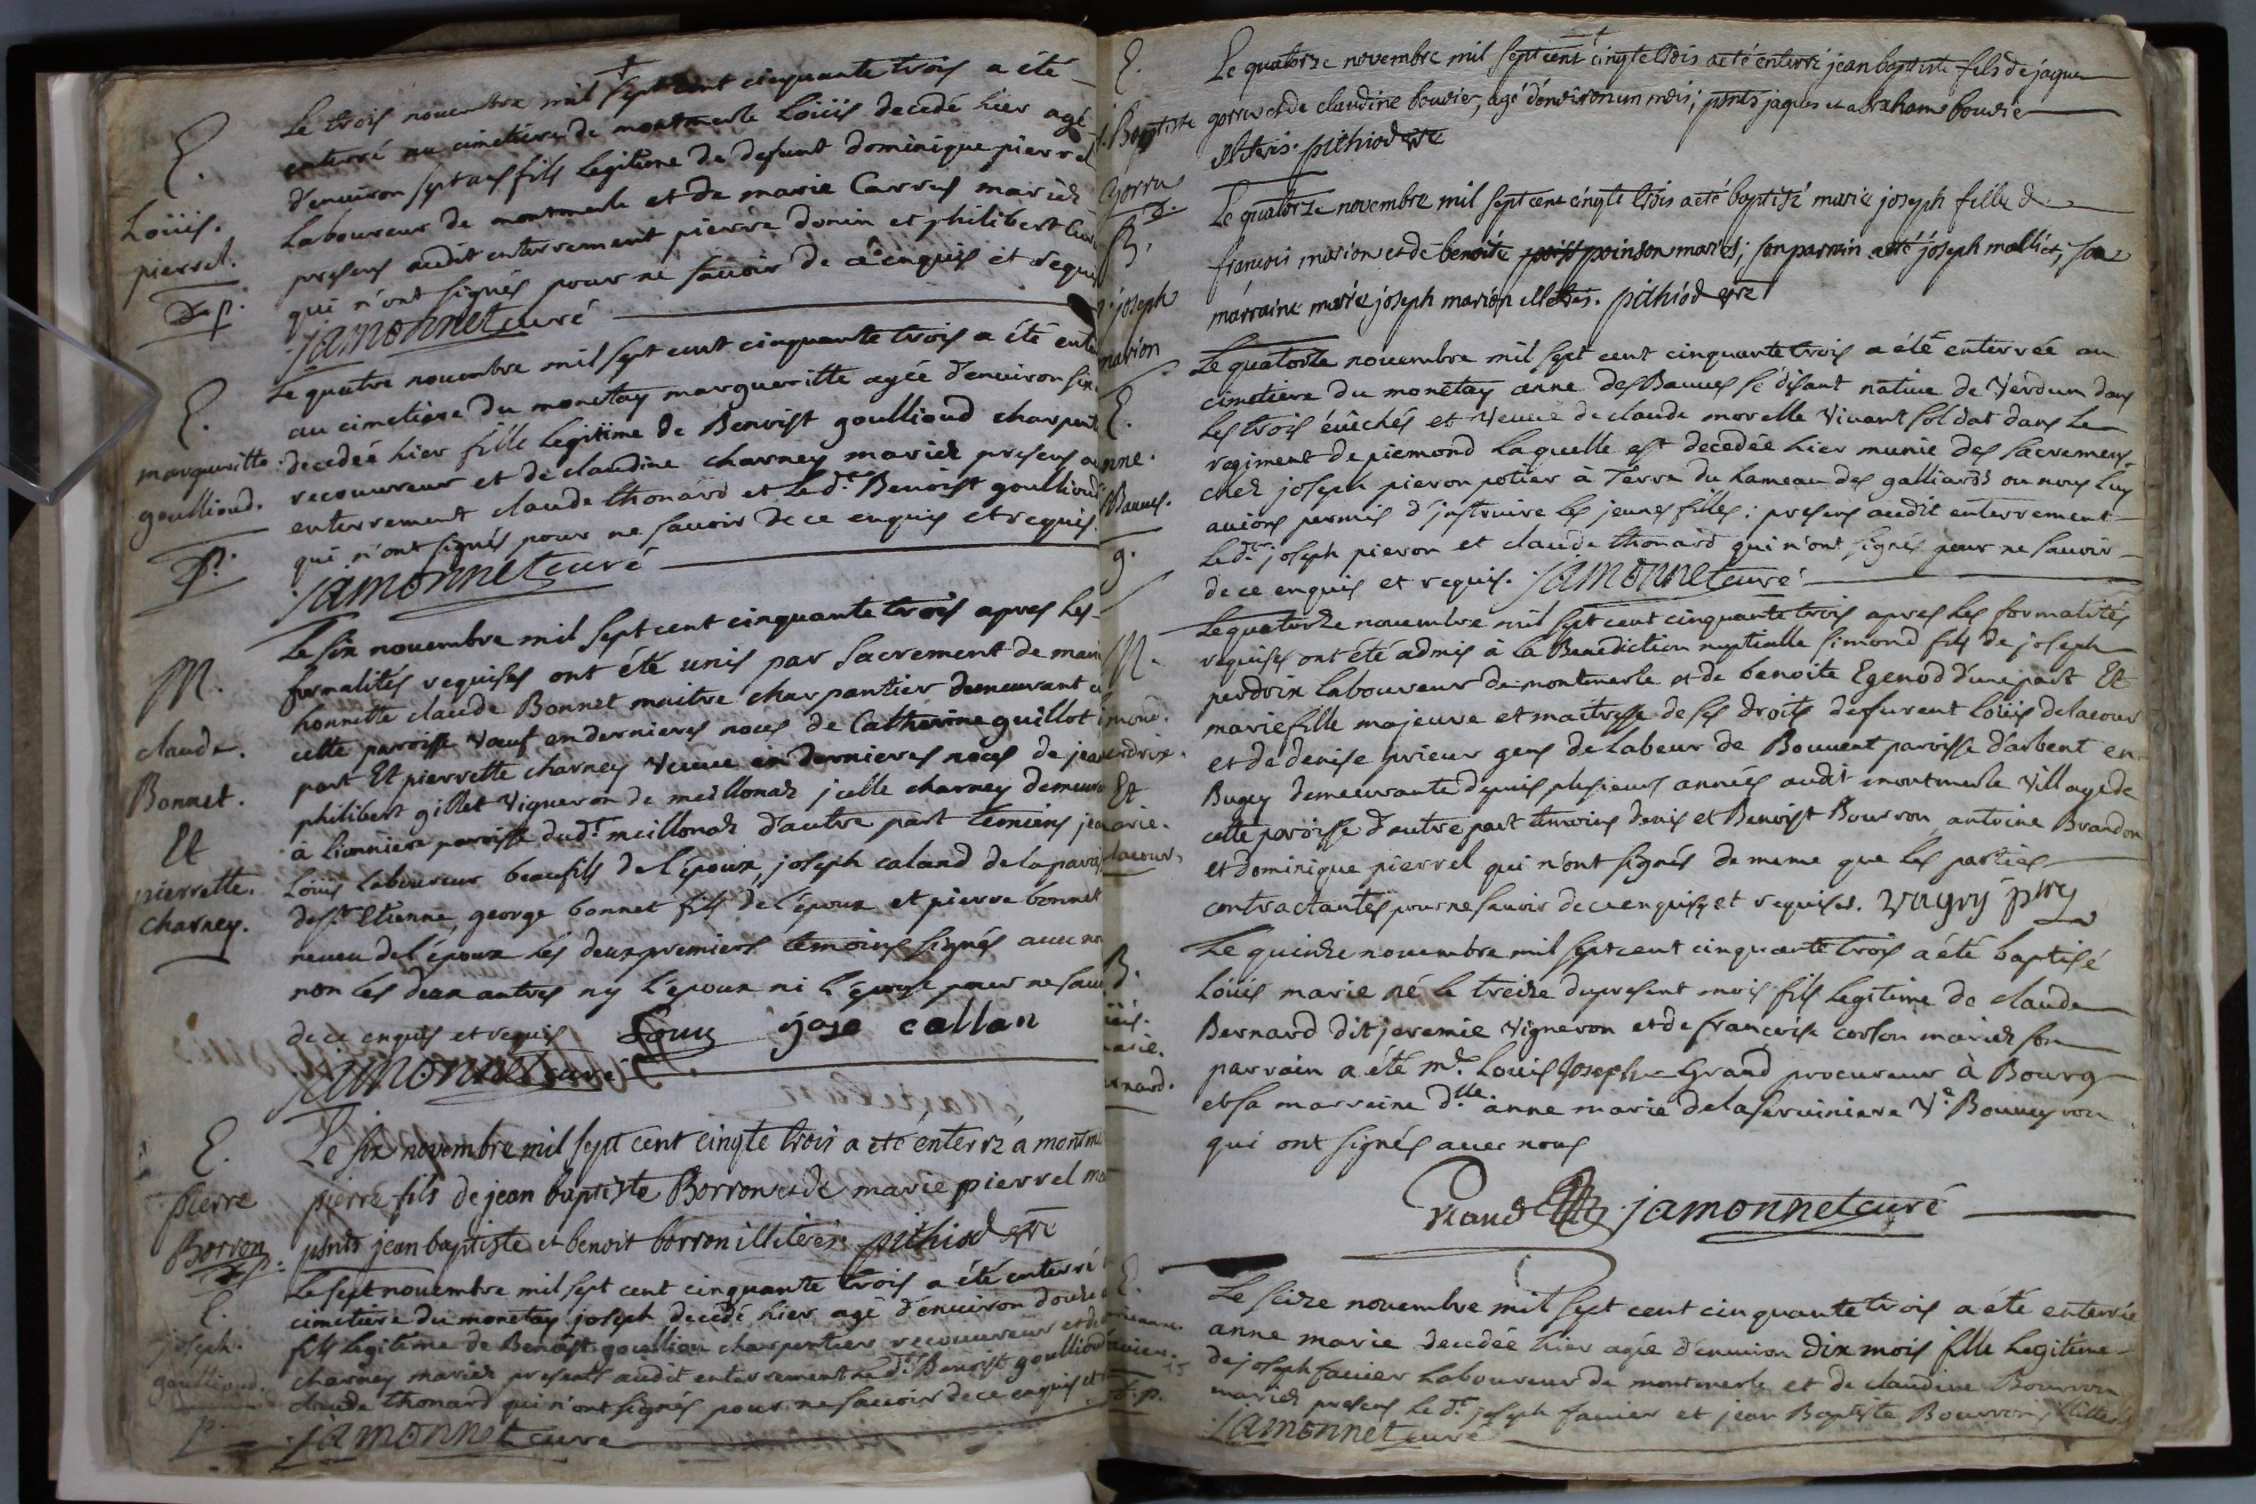 E.
Loüis.
pierrel.
Le trois novembre mil sept cent cinquante trois a été
enterré au cimetiere de montmerle Loüis decedé hier agé
d'environ sept ans fils legitime de defunt dominique pierrel
Laboureur de montmerle et de marie Carret mariez
presens audit enterrement pierre donin et philibert
qui n'ont signés pour ne savoir de ce enquis et requis
jamonnet curé
E.
margueritte
goullioud.
p.
Le quatre novembre mil sept cent cinquante trois a été
au cimetiere du monetay margueritte agée d'environ
decedée hier fille legitime de Benoist goullioud
recouvreur et de claudine charney mariez presens
enterrement claude thonard et led.t Benoist goullioud
qui n'ont signés pour ne savoir de ce enquis et requis.
jamonnet curé
M.
claude.
Bonnet.
Et
pierrette.
charney.
Le six novembre mil sept cent cinquante trois apres les
formalités requises ont été unis par sacrement de
honnette claude Bonnet maitre charpantier demeurant
cette paroisse voeuf en dernieres noces de Catherine guillot
part Et pierrette charney veuve en dernieres noces de jean
philibert gillet vigneron de meillonaz jcelle charney
à lionniere paroisse dud.t meillonaz d'autre part temoins
Loüis laboureur beaufils de l'époux, joseph caland de la
de s.t Etienne, george bonnet fils de l'époux et pierre bonnet
neveu de l'époux les deux premiers temoins signés avec
non les deux autres ny l'époux ni l'épouse pour ne
de ce enquis et requis Louy josе callan
jamonnet curé
E.
Pierre
Borron
Le six novembre mil sept cent cinqte trois a eté enterré a
pierre fils de jean baptiste Borron et de marie pierrel
psnts jean baptiste et benoit borron illiteres pithiod
E.
joseph.
goullioud.
p.
Le sept novembre mil sept cent cinquante trois a été enterré
cimetiere du monetay joseph decedé hier agé d'environ douze
fils legitime de Benoist goulliou charpentier recouvreur et de
charney mariez presens audit enterrement led.t Benoist goulliou
claude thonard qui n'ont signés pour ne savoir de ce enquis et
jamonnet curé
E.
j. Baptiste
Gorru
Le quatorze novembre mil sept cent cinqte trois a eté enterré jean baptiste fils de jaque
gorru et de claudine bouvier, agé d'environ un mois; psnts jaques et abraham bouvie
illiteris. pithiod
B.
joseph
marion
Le quatorze novembre mil sept cent cinqte trois a eté baptisé marie joseph fille d
francois marion et de benoite poinson mariés; son parrain a eté joseph malliet, sa
marraine marie joseph marion illiteres. pithiod
E.
nne.
sBauves.
g.
Le quatorze novembre mil sept cent cinquante trois a été enterrée au
cimetiere du monetay anne desBauves se disant native de Verdum dans
les trois évêchés et veuve de claude morelle vivant soldat dans le
regiment de piemond laquelle est decedée hier munie des sacremens
chez joseph pieron potier à terre du hameau des galliards ou nous luy
avions permis d'jnstruire les jeunes filles: presens audit enterrement
led.t joseph pieron et claude thonard qui n'ont signés pour ne savoir
de ce enquis et requis. jamonnet curé
M.
imond.
erdrix.
Et
arie.
lacour.
Le quatorze novembre mil sept cent cinquante trois apres les formalités
requises ont été admis à la Benediction nuptialle simond fils de joseph
perdrix laboureur de montmerle et de benoite Egenod d'une part Et
marie fille majeure et maitresse de ses droits defurent loüis delacour
et de denise prieur gens de labeur de Bouvent paroisse d'arbent en
Bugey demeurante depuis plusieurs années audit montmerle village de
cette paroisse d'autre part temoins denis et Benoist Bourron, antoine Brandon
et dominique pierrel qui n'ont signés de meme que les parties
contractantes pour ne savoir de ce enquis et requises. vugny
B.
oüis.
marie.
rnard.
Le quinze novembre mil sept cent cinquante trois a été baptisé
Loüis marie né le treize du present mois fils legitime de claude
Bernard dit jeremie vigneron et de françoise corton mariez son
parrain a été m.e Louis Joseph Grand procureur à Bourg
et sa marraine d.lle anne marie delaferviniere v.e Bouveyron
qui ont signés avec nous
jamonnet curé
E.
Le seize novembre mil sept cent cinquante trois a été enterrée
anne marie decedée hier agée d'environ dix mois fille legitime
de joseph favier laboureur de montmerle et de claudine Bourron
mariez presens le d.t joseph favier et jean Baptiste Bourron, jlliteres
jamonnet curé